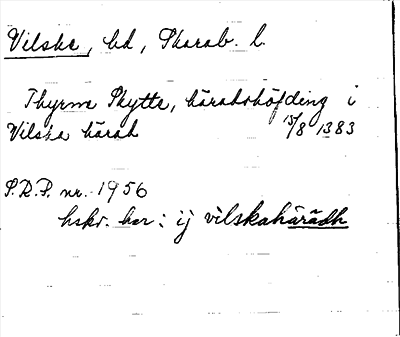 Vilske, hd, Skarab. l.
Thyrme Skytte, häradshöfding i
Vilska härad 15/8 1383
S.R.P. nr. 1956
hskr. har: ij vilskahärädh